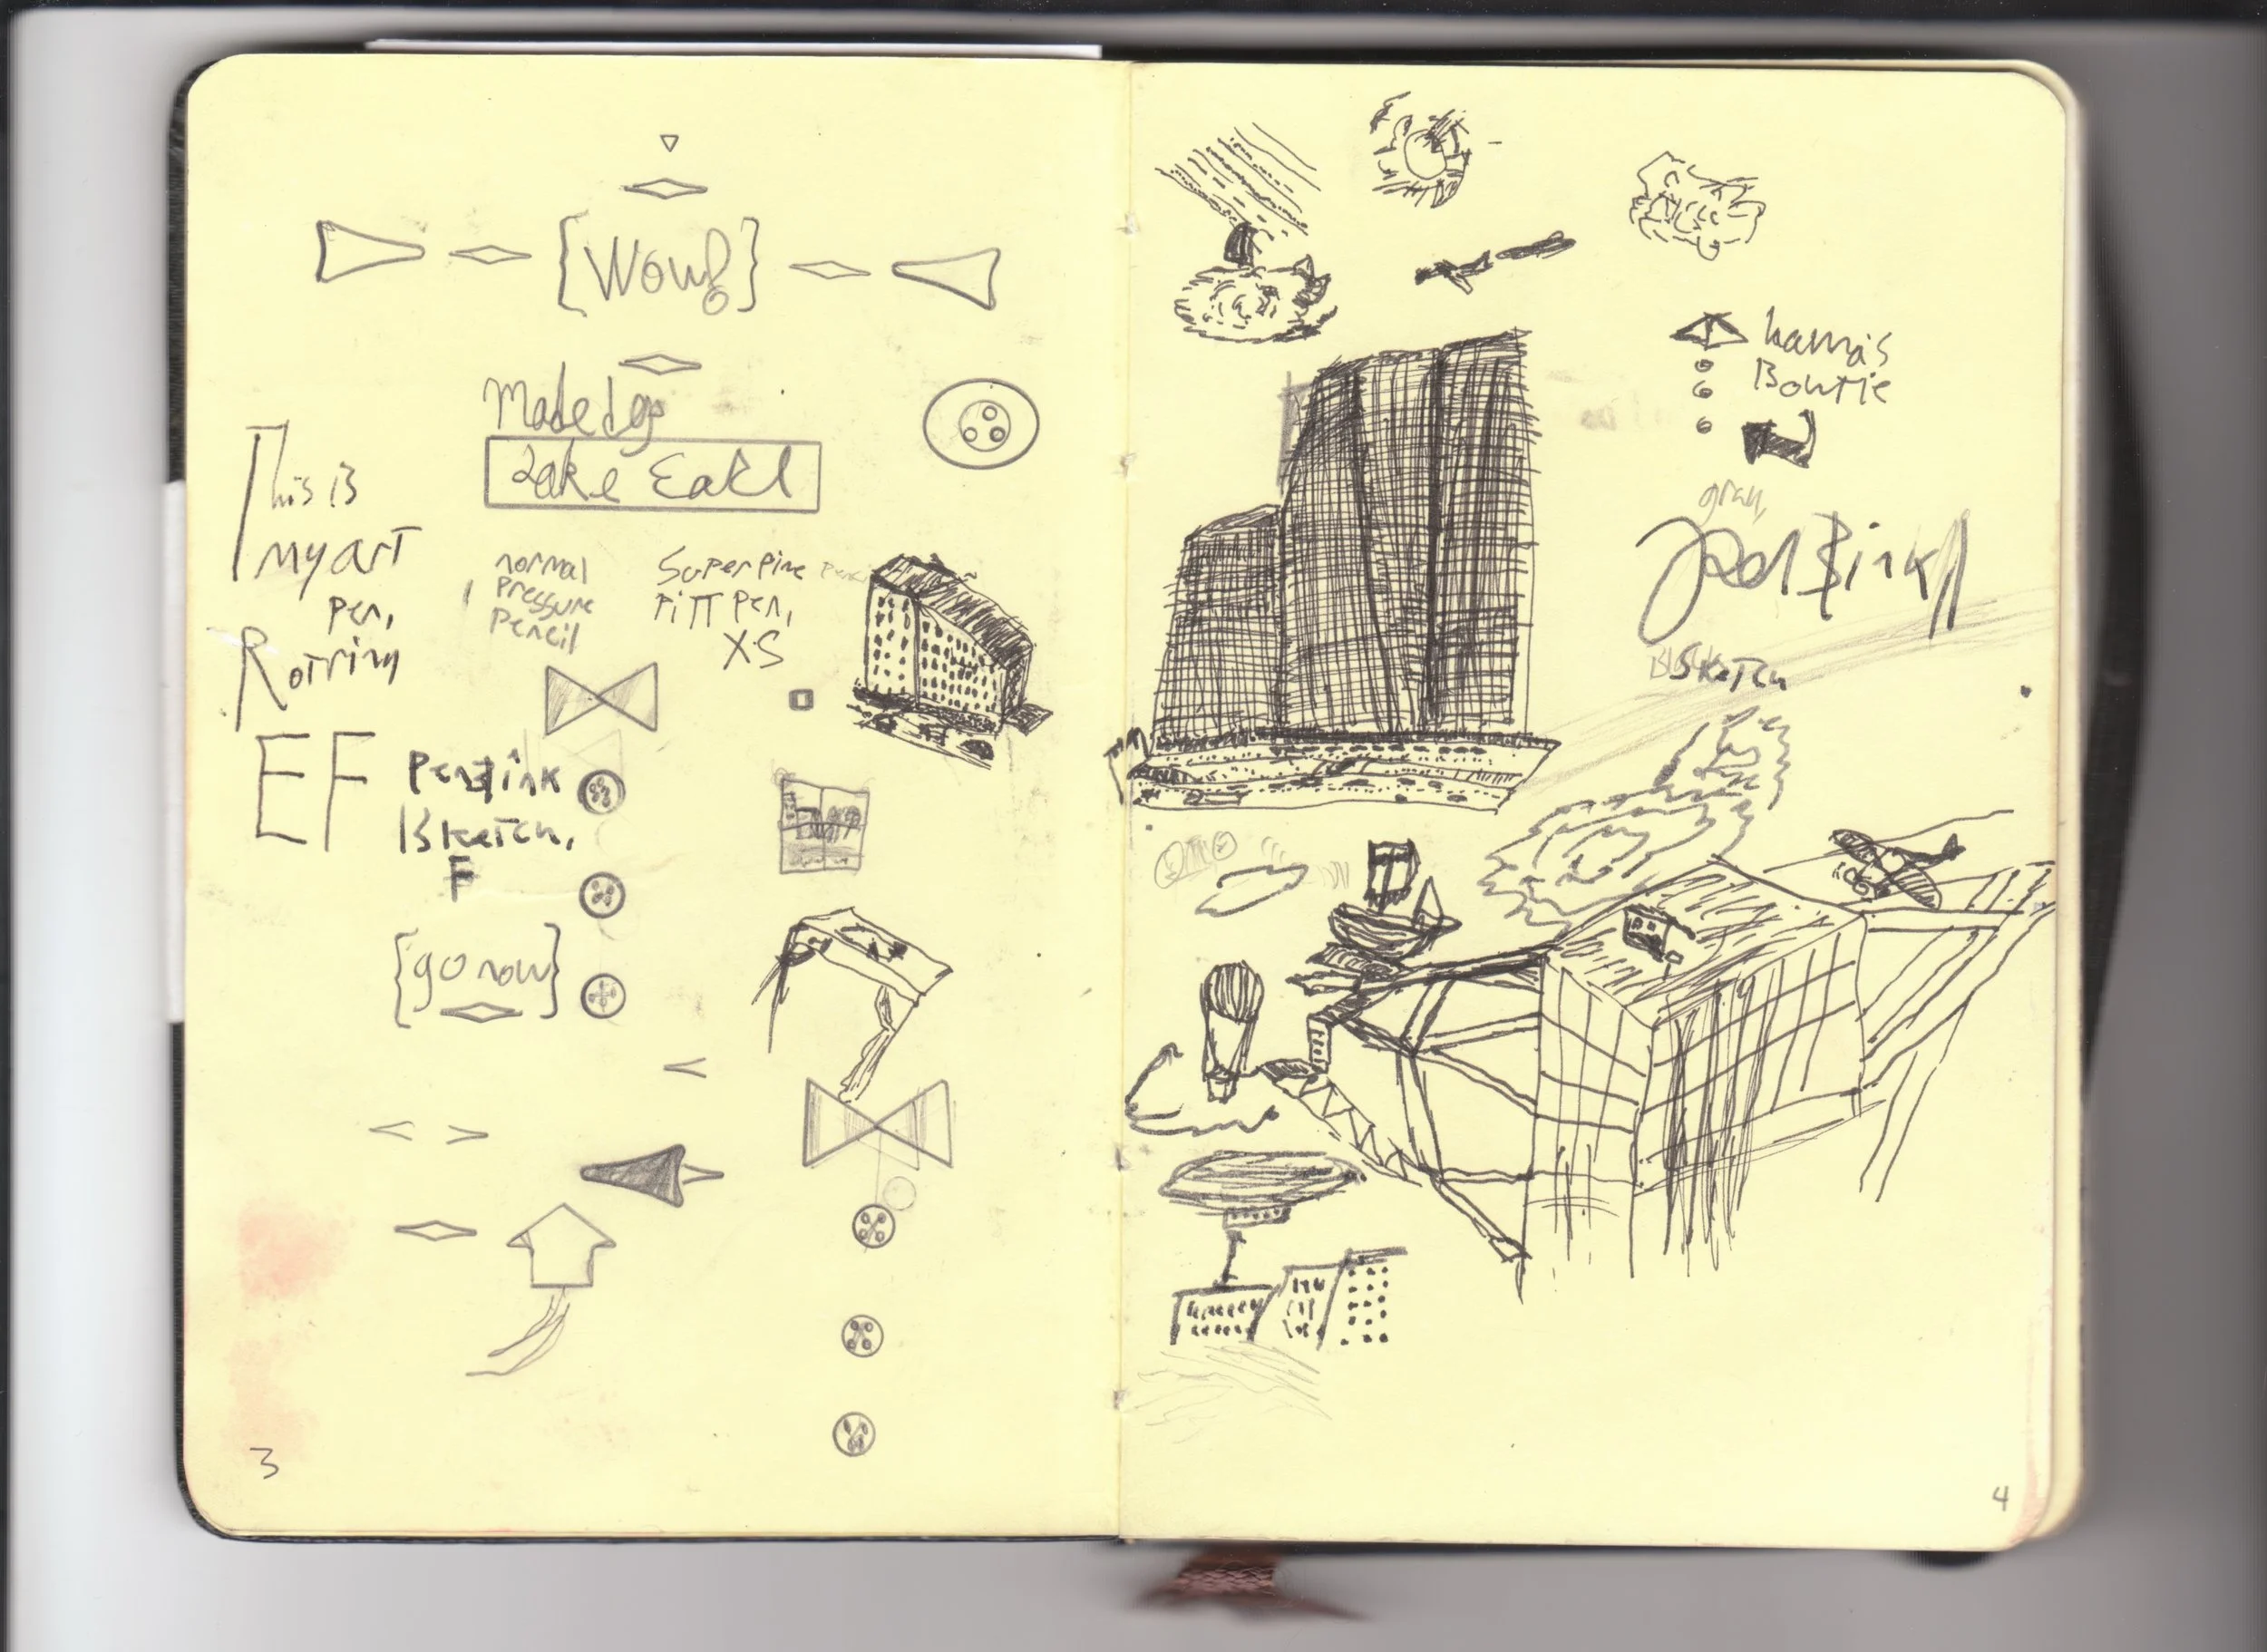 {Wow!}
Made dgs
Lake Earl
This is
my art
pen,
Rotring
EF
normal
pressure
pencil
Superfine
PITT pen,
XS
Pen & ink
Sketch,
F
{go now}
3
Bowtie
gray,
Sketch
4